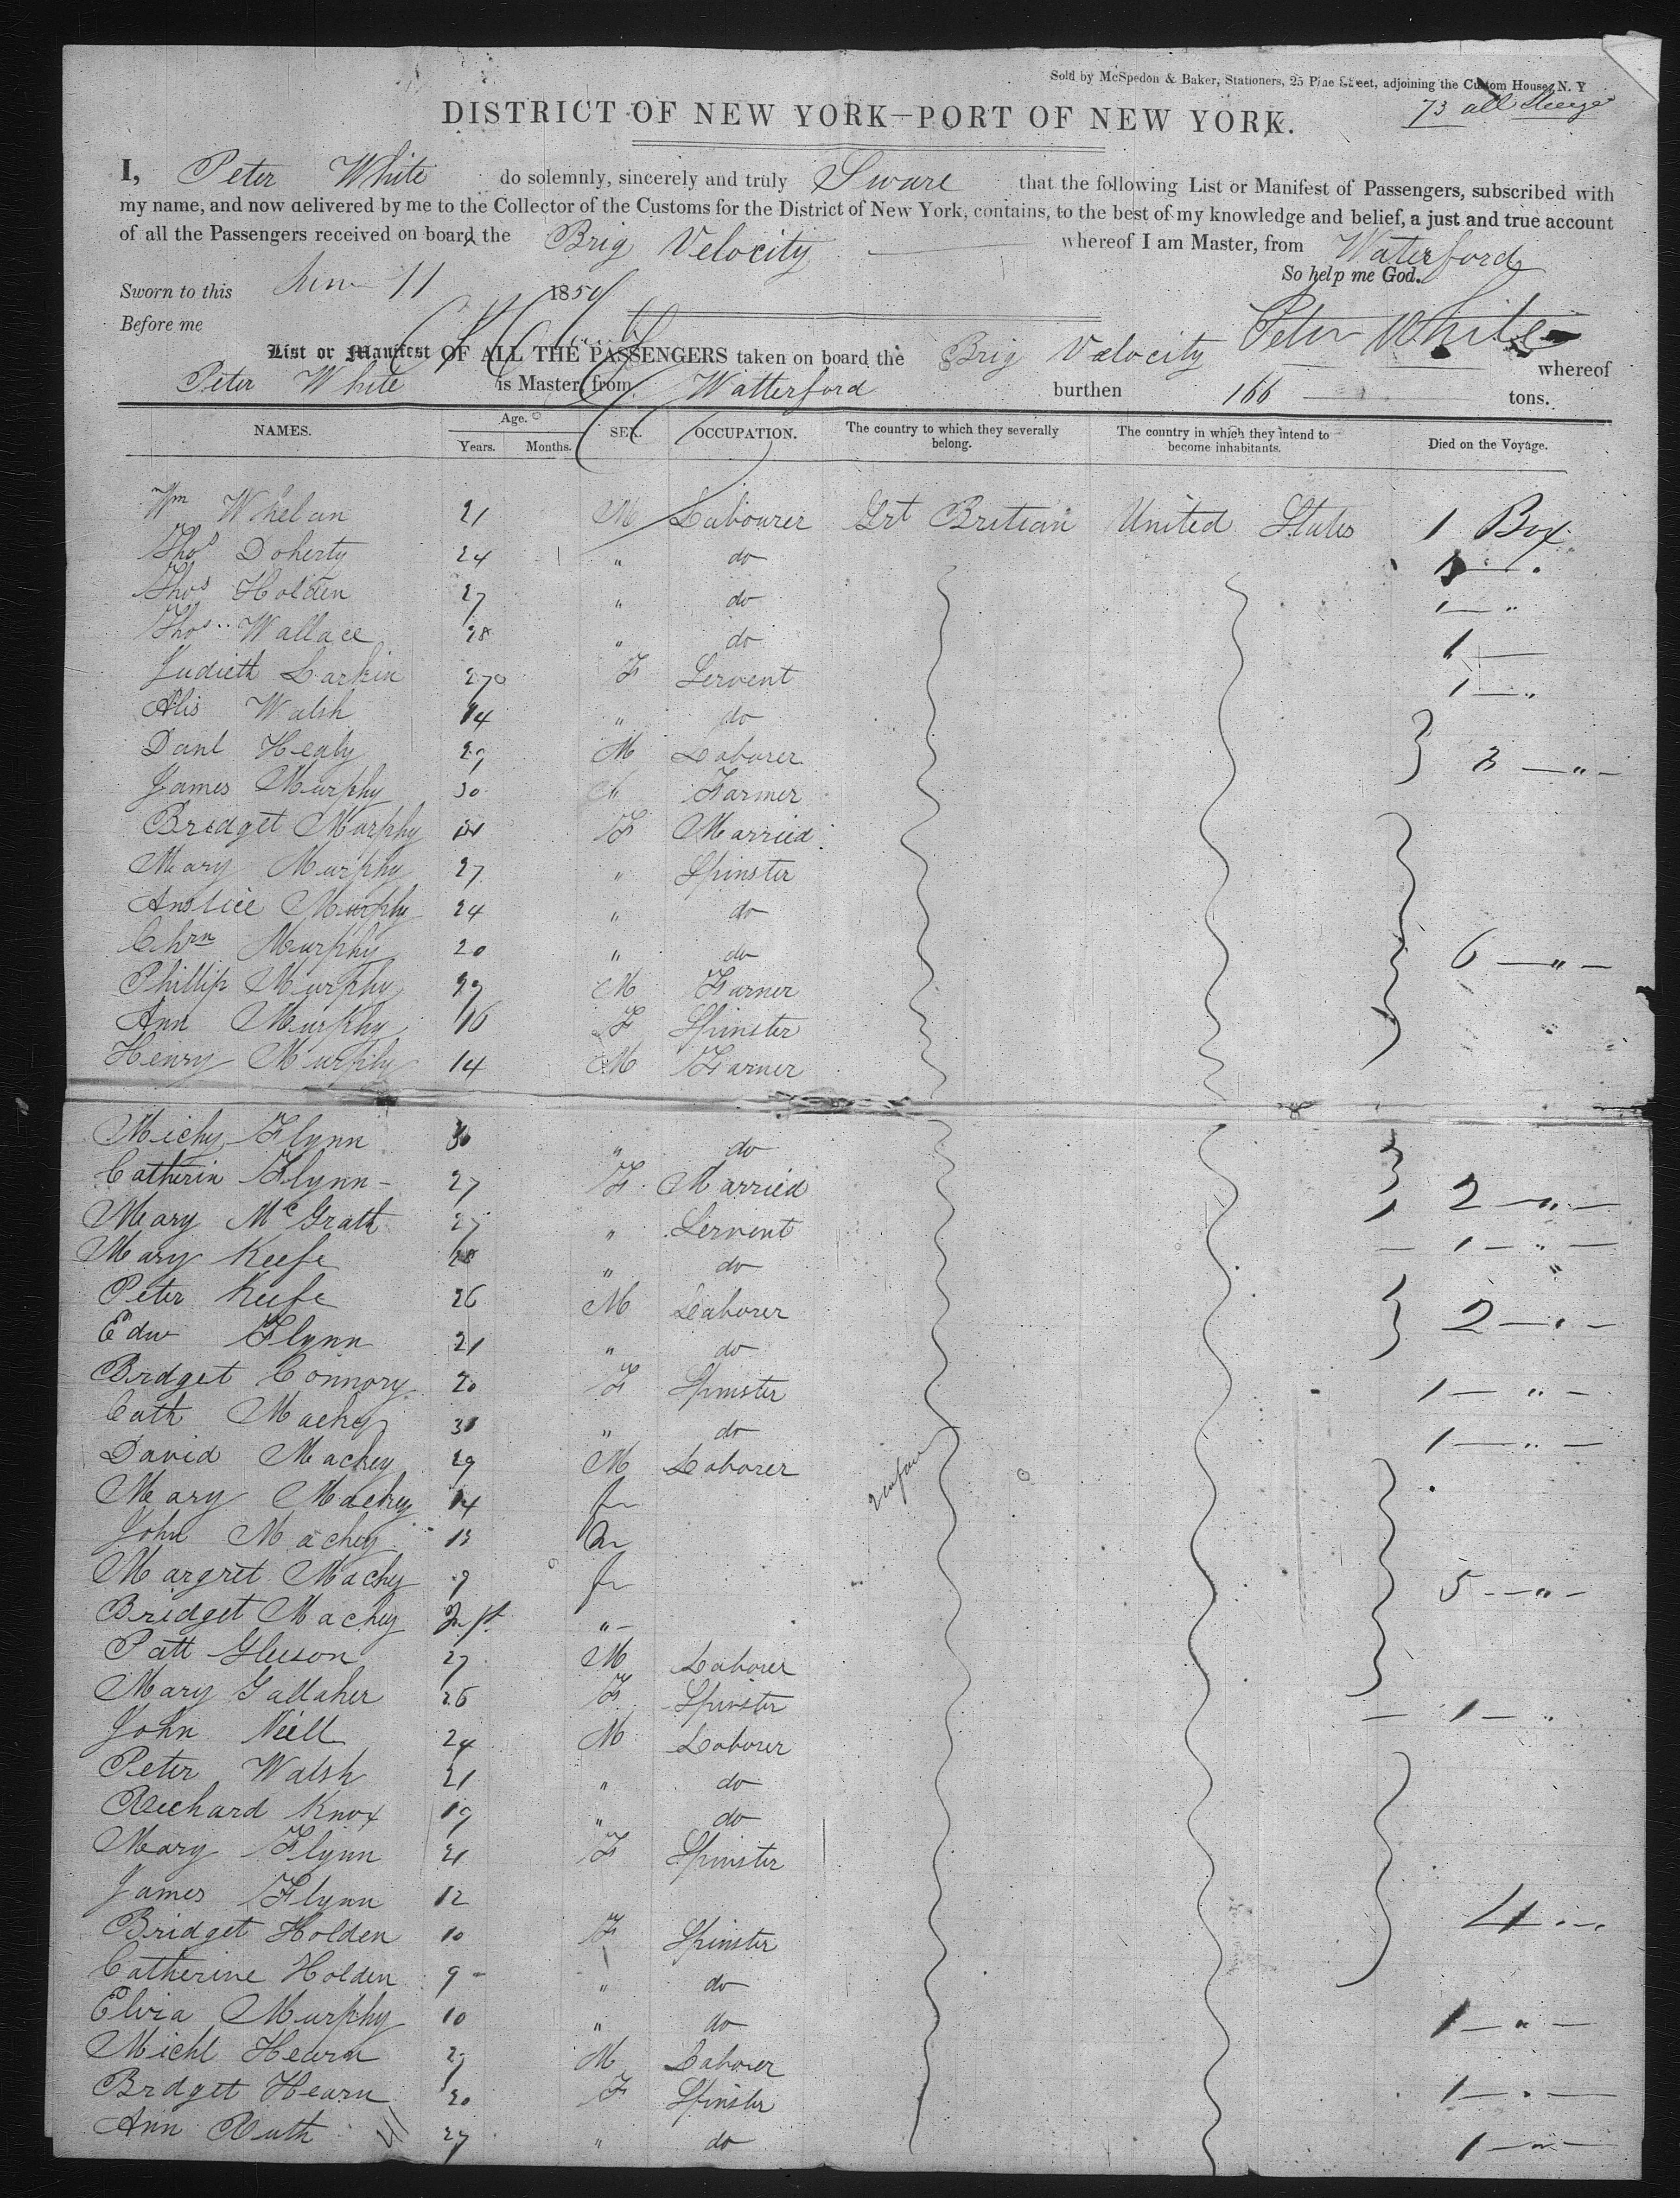 Sold by McSpedon & Baker, Stationers, 25 Pine Street, adjoining the Custom House, N. Y
73 all Steerge
DISTRICT OF NEW YORK—PORT OF NEW YORK.
I, Peter White do solemnly, sincerely and truly Sware that the following List or Manifest of Passengers, subscribed with
my name, and now delivered by me to the Collector of the Customs for the District of New York, contains, to the best of my knowledge and belief, a just and true account
of all the Passengers received on board the Brig Velocity whereof I am Master, from Waterford
So help me God.
Sworn to this 11 185
Before me
Peter White
List or Manifest OF ALL THE PASSENGERS taken on board the Brig Velocity whereof
Peter White is Master, from Watterford burthen 166 tons.
NAMES. Age. Years. Months. SEX. OCCUPATION. The country to which they severally belong. The country in which they intend to become inhabitants. Died on the Voyage.
Wm Whelan 21 M Labourer Grt Britian United States 1 Box
Thos Doherty 24 " do 1 — "
Thos Holden 27 " do 1 — "
Thos Wallace 28 " do 1 —
Judieth Larkin 20 F Servent 1 — "
Alis Walsh 14 " do
Danl Healy 29 M Laborer 3 — " —
James Murphy 30 " Farmer
Bredget Murphy F Married
Mary Murphy 27 " Spinster
Anstice Murphy 24 " do
Chrn Murphy 20 " do 6 — " —
Phillip Murphy 29 M Farmer
Ann Murphy 16 F Spinster
Henry Murphy 14 M Farmer
Michy Flynn 30 " do
Catherin Flynn 27 F Married 2 — " —
Mary McGrath 27 " Servent
Mary Keefe 28 " do — 1 — " —
Peter Keefe 26 M Laborer 2 — " —
Edw Flynn 21 " do
Brdget Connory 20 F Spinster 1 — " —
Cath Mackey 30 " do 1 — " —
David Mackey 29 M Laborer
Mary Mackey 14 fm
John Mackey 13 m
Margret Mackey 9 fm 5 — " —
Bridget Mackey Inft " —
Patt Gleeson 27 M Laborer
Mary Gallaher 26 F Spinster — 1 — "
John Niell 24 M Laborer
Peter Walsh 21 " do
Reichard Knox 19 " do
Mary Flynn 21 F Spinster
James Flynn 12 4 " —
Bridget Holden 10 F Spinster
Catherine Holden 9 - " do
Elvia Murphy 10 " do 1 — " —
Michl Hearn 29 M Laborer
Brdget Hearn 20 F Spinster 1 — " —
Ann Ruth 27 " do 1 — " —